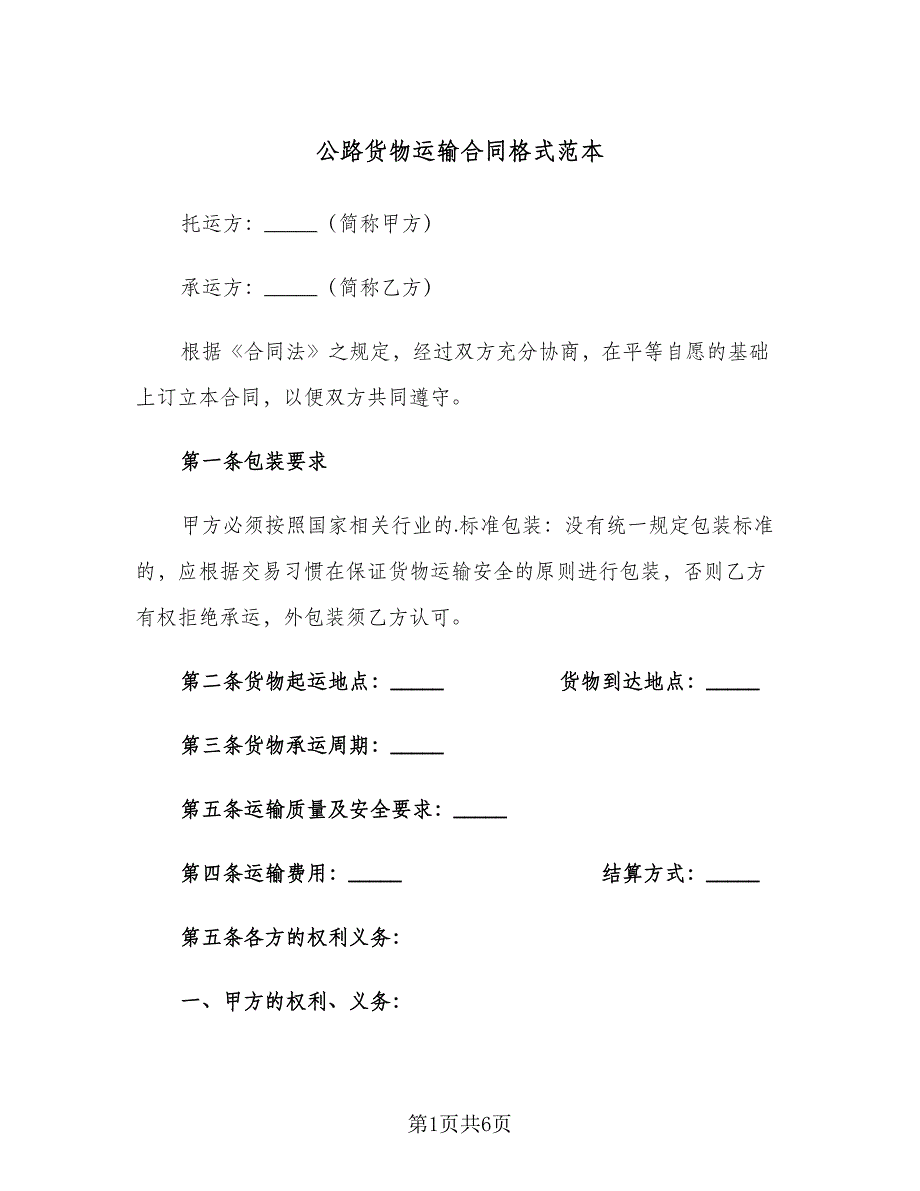 公路货物运输合同格式范本
托运方：_____（简称甲方）
承运方：_____（简称乙方）
根据《合同法》之规定，经过双方充分协商，在平等自愿的基础
上订立本合同，以便双方共同遵守。
第一条包装要求
甲方必须按照国家相关行业的.标准包装：没有统一规定包装标准
的，应根据交易习惯在保证货物运输安全的原则进行包装，否则乙方
有权拒绝承运，外包装须乙方认可。
第二条货物起运地点：_____ 货物到达地点：_____
第三条货物承运周期：_____
第五条运输质量及安全要求：_____
第四条运输费用：_____ 结算方式：_____
第五条各方的权利义务：
一、甲方的权利、义务：
第1页共6页